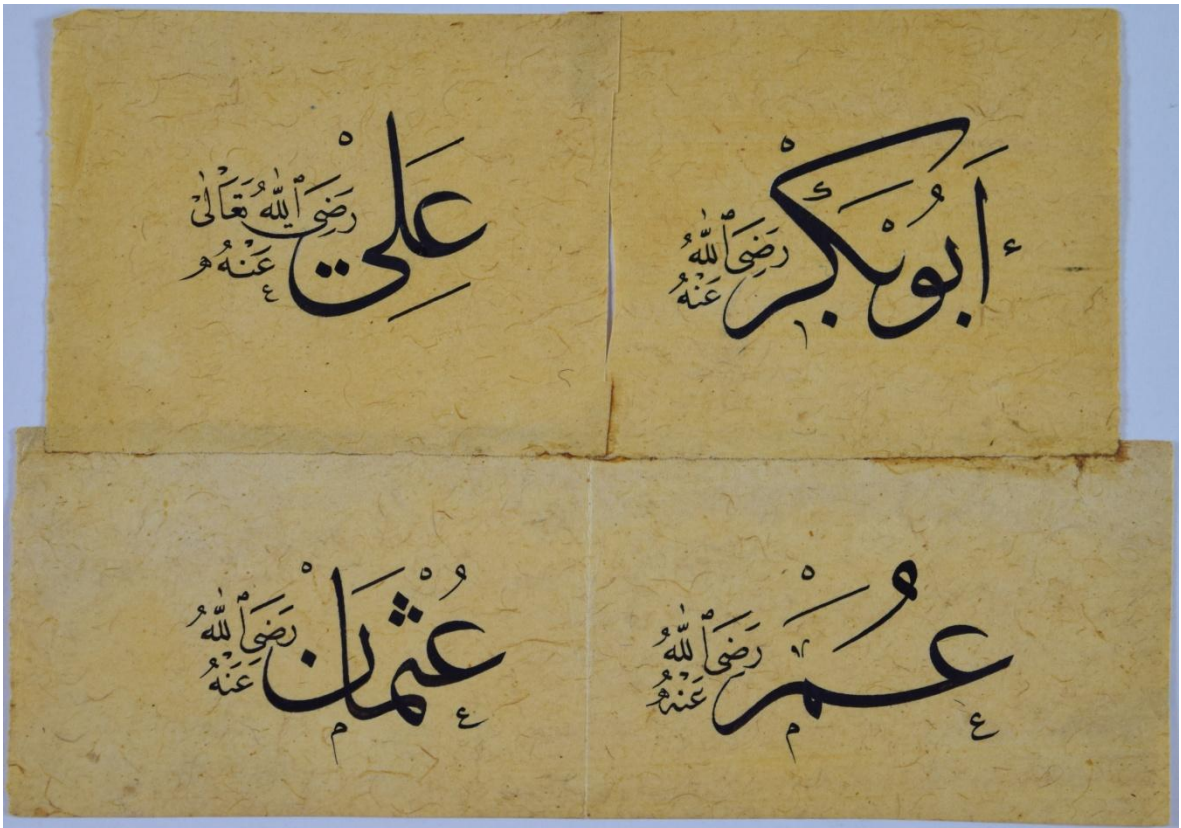 أَبُوبَكْرْ رَضِيَ ٱللّٰهُ عَنْهُ
عَلِيْ رَضِيَ ٱللّٰهُ تَعَالٰى عَنْهُ
عُمَرْ رَضِيَ ٱللّٰهُ عَنْهُ
عُثْمَانْ رَضِيَ ٱللّٰهُ عَنْهُ